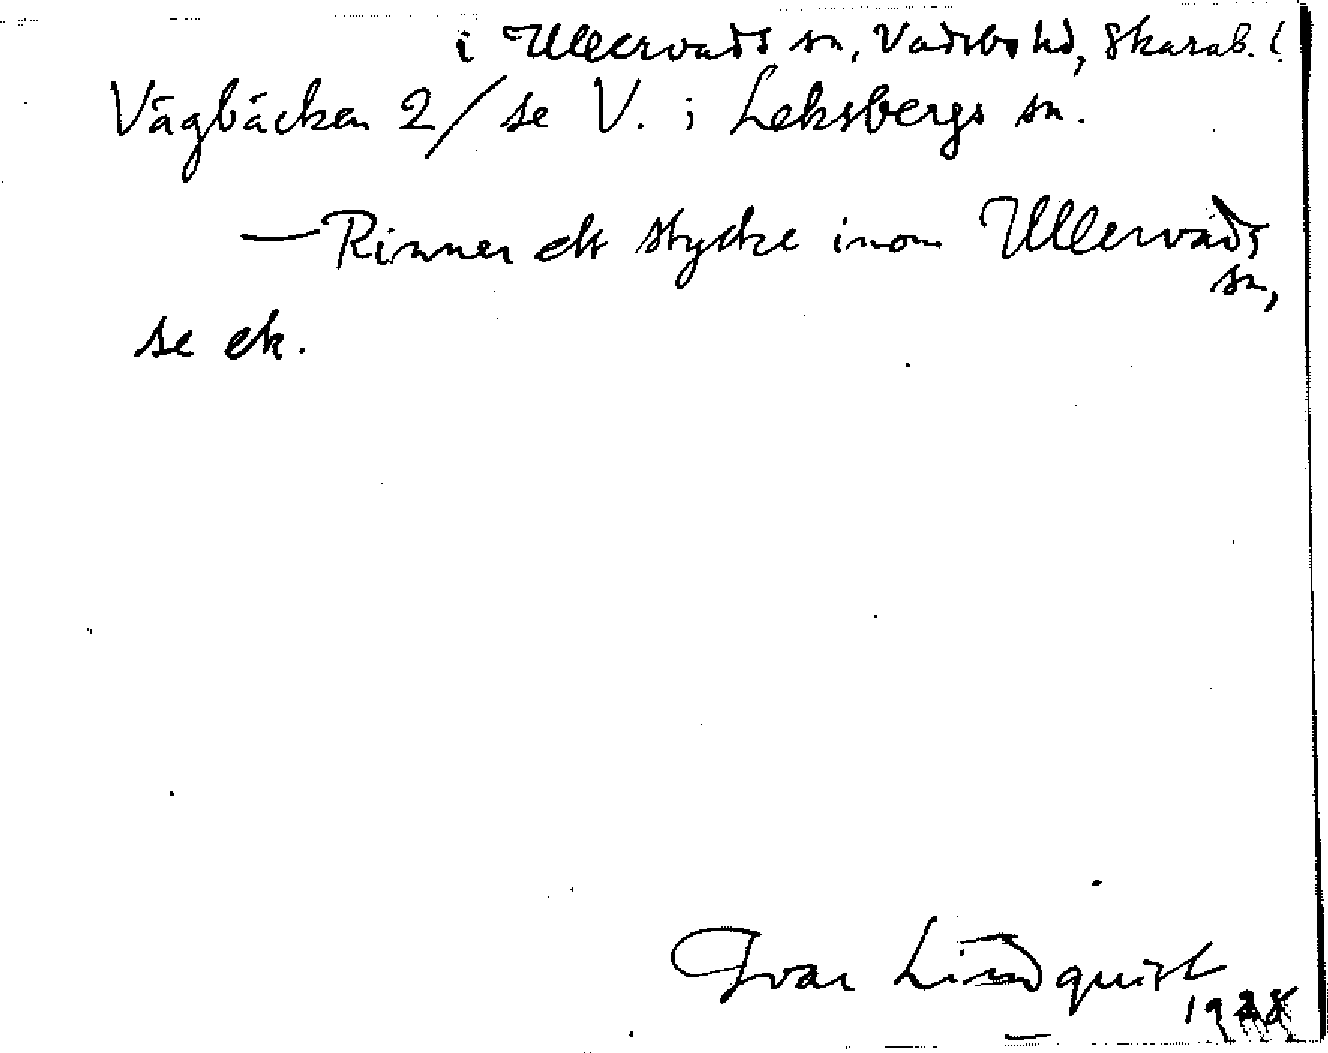 i Ullervads sn, Vadsbo hd, Skarab. l.
Vägbäcken 2/ se V. i Leksbergs sn.
— Rinner ett stycke inom Ullervads
sn,
se ek.
Ivar Lindquist
1928